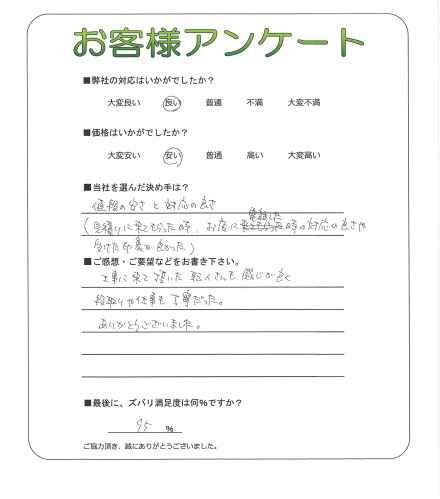 お客様アンケート
■弊社の対応はいかがでしたか？
大変良い 良い 普通 不満 大変不満
■価格はいかがでしたか？
大変安い 安い 普通 高い 大変高い
■当社を選んだ決め手は？
値段の安さと対応の良さ
電話した
(見積りに来てもらった時、お店に来てもらった時の対応の良さや
受けた印象が良かった)
■ご感想・ご要望などをお書き下さい。
工事に来て頂いた職人さんも感じが良く
段取りや仕事も丁寧だった。
ありがとうございました。
■最後に、ズバリ満足度は何%ですか？
95 %
ご協力頂き、誠にありがとうございました。